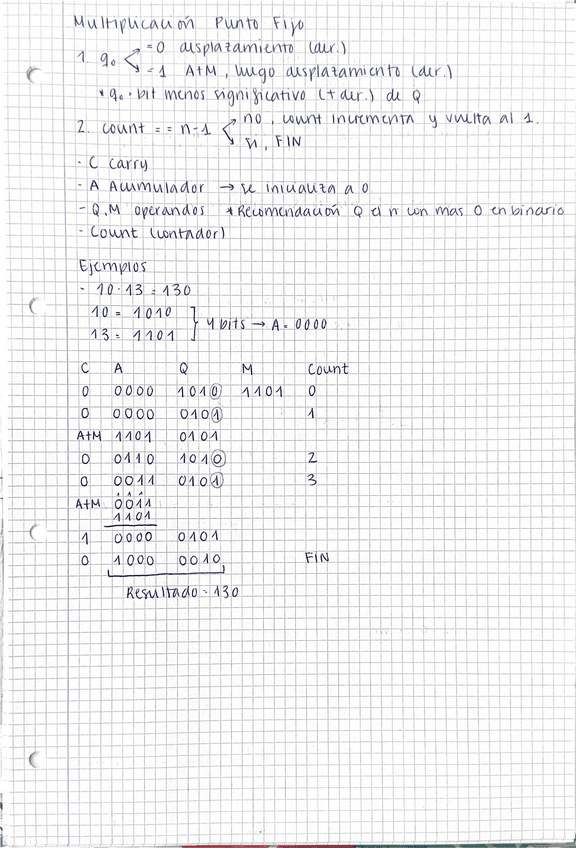 Multiplicación Punto Fijo
1. q₀ < =0 desplazamiento (der.)
=1 A+M, luego desplazamiento (der.)
* q₀ · bit menos significativo (+ der.) de Q
2. count == n-1 < no, count incrementa y vuelta al 1.
si, FIN
- C Carry
- A Acumulador → se inicializa a 0
- Q,M operandos * Recomendación Q el n con mas 0 en binario
- Count (contador)
Ejemplos
- 10·13 = 130
10 = 1010
13 = 1101 } 4 bits → A = 0000
C A Q M Count
0 0000 1010 1101 0
0 0000 0101 1
A+M 1101 0101
0 0110 1010 2
0 0011 0101 3
A+M 0011
1101
1 0000 0101
0 1000 0010 FIN
Resultado = 130